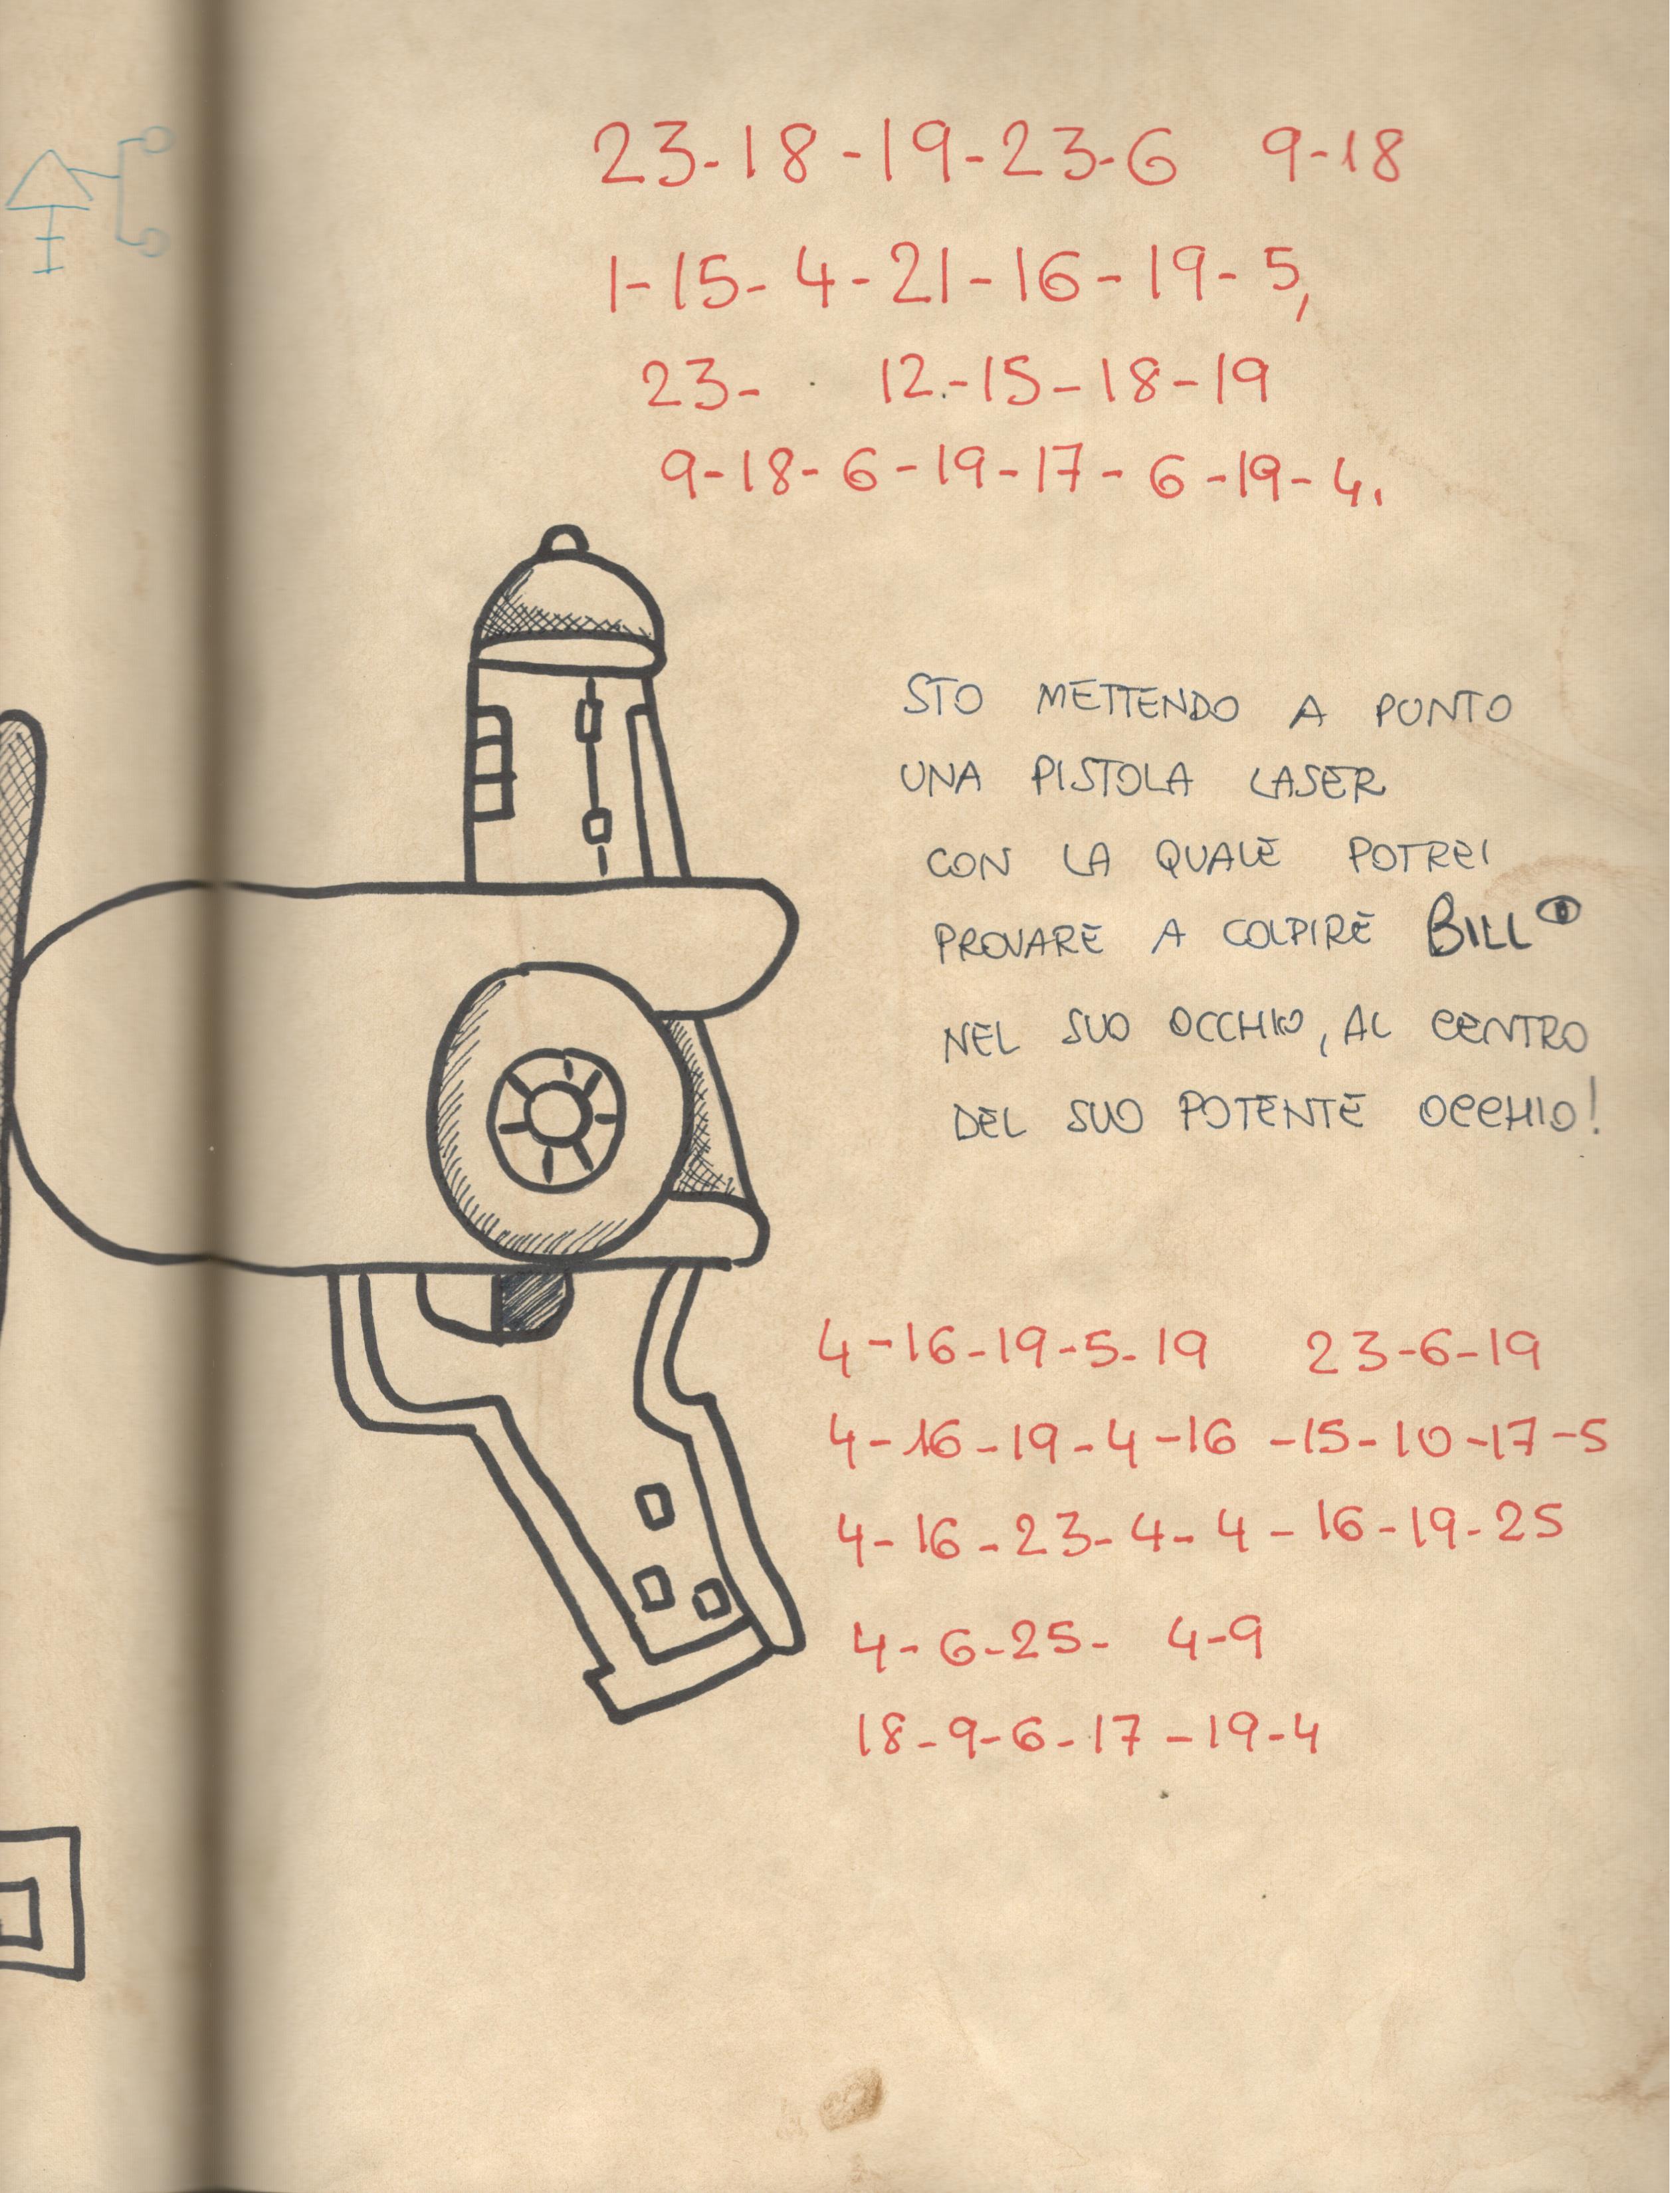 23-18-19-23-6 9-18
1-15-4-21-16-19-5,
23- 12-15-18-19
9-18-6-19-17-6-19-4.
STO METTENDO A PUNTO
UNA PISTOLA LASER
CON LA QUALE POTREI
PROVARE A COLPIRE BILL
NEL SUO OCCHIO, AL CENTRO
DEL SUO POTENTE OCCHIO!
4-16-19-5-19 23-6-19
4-16-19-4-16-15-10-17-5
4-16-23-4-4-16-19-25
4-6-25- 4-9
18-9-6-17-19-4